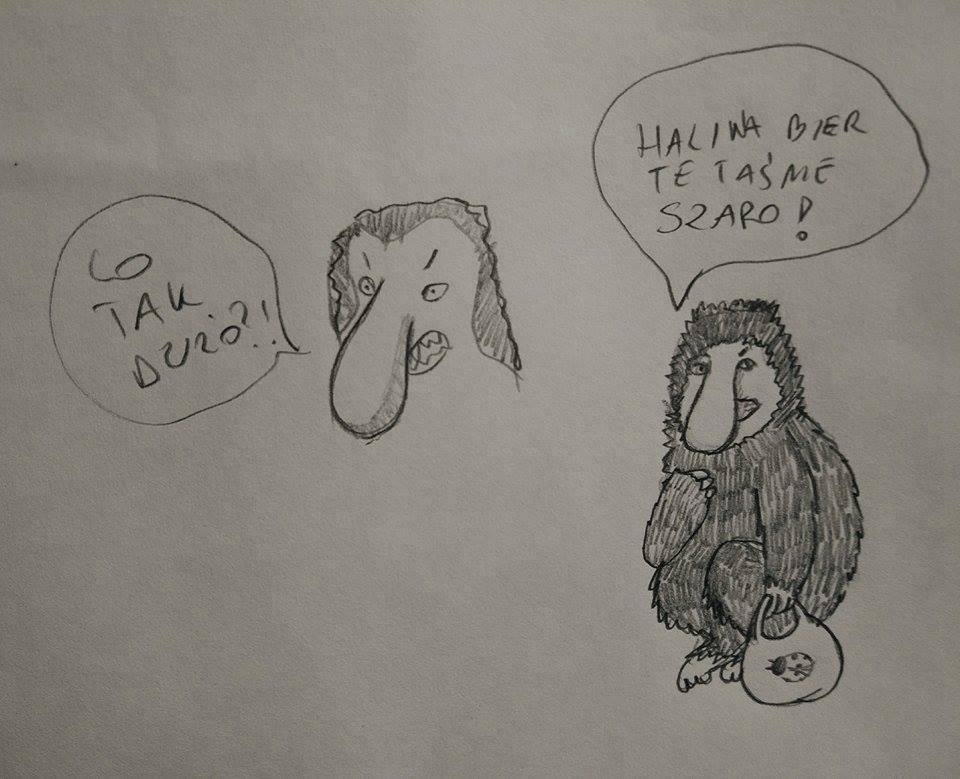 CO
TAK
DUŻO?!
HALINA BIER
TE TAŚME
SZARO!